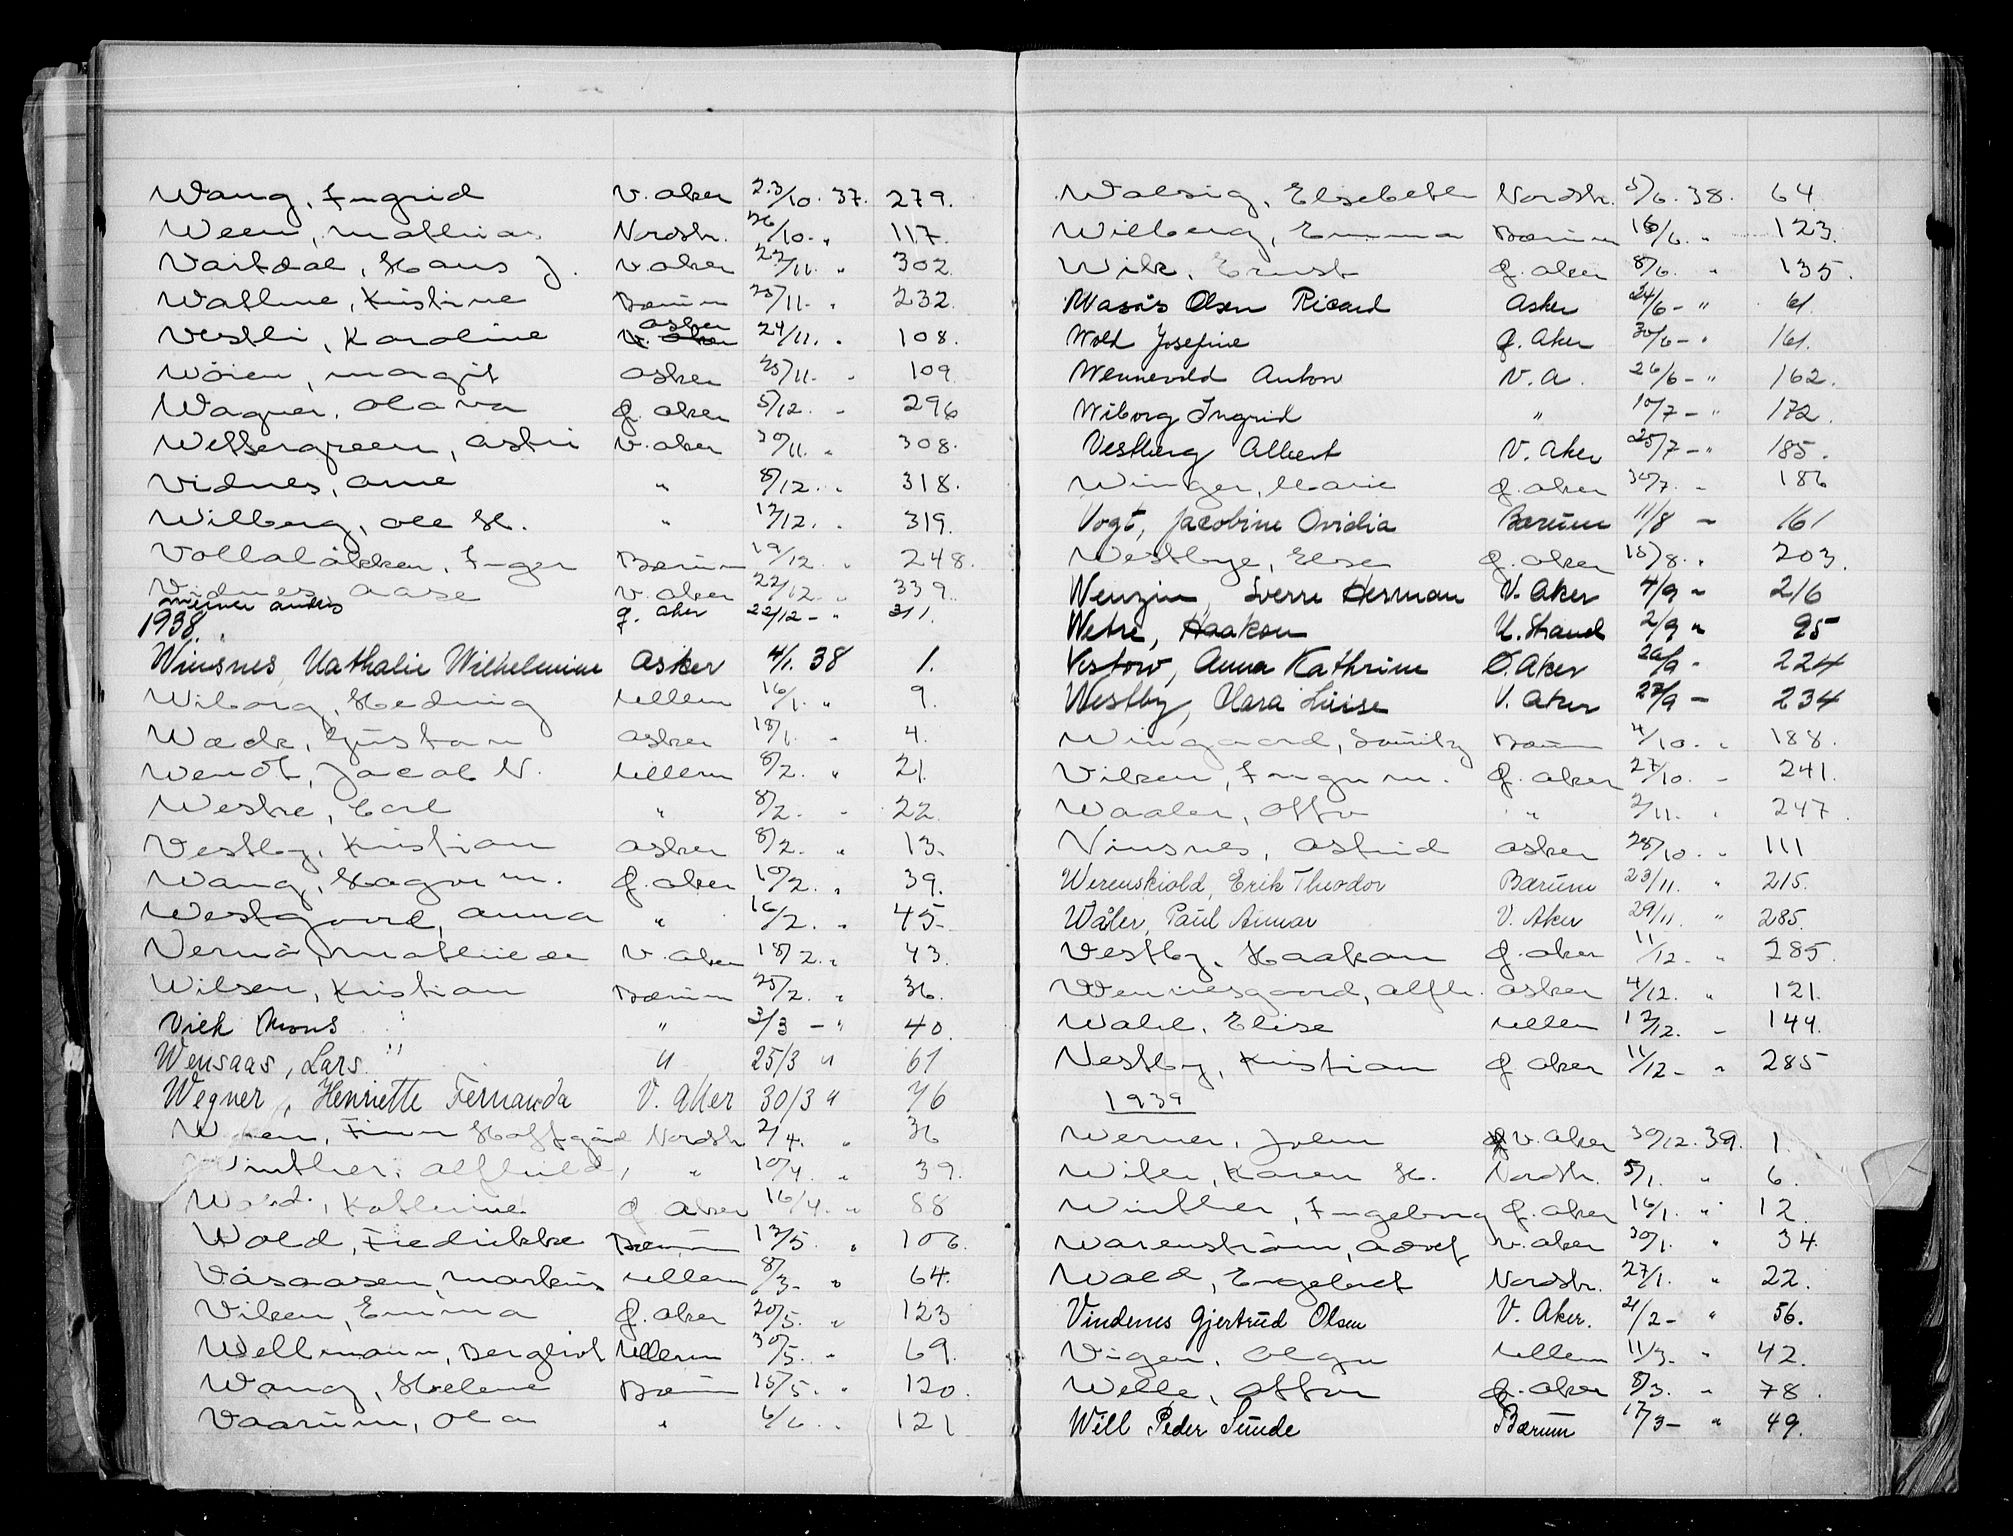 Wang, Ingrid V. Aker 23/10. 37. 279.
Ween, Mathias Nordstr. 26/10. " 117.
Vartdal, Hans J. V. Aker 22/11. " 302.
Wathne, Kristine Bærum 25/11. " 232.
Vestli, Karoline Asker 24/11. " 108.
Wöien, Margit Asker 25/11. " 109
Wagner, Olava Ø. Aker 5/12. " 296
Wettergreen, Astri V. Aker 30/11. " 308.
Vidnes, Arne " 8/12. " 318.
Wilberg, Ole H. " 12/12. " 319.
Vollaløkken, Inger Bærum 19/12. " 248.
Vidnes, Aase V. Aker 22/12. " 339.
Werner Anders Ø. Aker 22/12 - " 311.
1938.
Winsnes, Nathalie Wilhelmine Asker 4/1. 38 1.
Wiborg, Hedvig Ullern 16/1. " 9.
Wæck, Gustav Asker 18/1. " 4.
Wendt, Jacob N. Ullern 8/2. " 21.
Westre, Carl " 8/2. " 22.
Vestby, Kristian Asker 8/2. " 13.
Wang, Hagar M. Ø. Aker 10/2. " 39.
Westgaard, Anna " 16/2. " 45.
Vernö, V. Aker 18/2. " 43.
Wilsen, Kristian Bærum 25/2. " 36.
Viek Mons " 3/3 - " 40.
Wensaas, Lars " 25/3 " 61
Wegner, Henriette Fernanda V. Aker 30/3 " 76
Finn Hoffgård Nordstr 2/4. " 36
Winther, Alfhild, " 10/4. " 39.
Wold, Kathrine Ø. Aker 16/4. " 88
Wold, Fredrikke Bærum 12/5. " 106.
Våsaasen, Markus Ullern 8/3- " 64.
Vilken, Emma Ø. Aker 20/5. " 123
Wellmann, Bergliot Ullern 30/5. " 69.
Wang, Helene Bærum 15/5. " 120.
Vaarum, Ola " 6/6. " 121
Walsig, Elisebeth Nordstr. 5/6. 38. 64.
Wilberg, Emma Bærum 16/6. " 123.
Wik, Ernst Ø. Aker 8/6. " 135.
Olsen Ricard Asker 24/6 - " 61.
Wold Josefine Ø. Aker 30/6 - " 161.
Wennevold Anton V. A. 26/6 - " 162.
Wiborg Ingrid " 10/7 - " 172.
Vestberg Albert V. Aker 25/7 - " 185.
Winger, Marie Ø. Aker 30/7. " 186
Vogt, Jacobine Ovidia Bærum 11/8 " 161
Westbye, Else Ø. Aker 15/8. " 203.
Wenzin, Sverre Herman V. Aker 4/9 " 216
Wetre, Haakon U. Strand 2/9 " 95
Vestow, Anna Kathrine Ø. Aker 20/9 " 224
Westby, Clara Luise V. Aker 23/9 " 234
Wingaard, Bærum 4/10. " 188.
Vilken, Ingv. M. Ø. Aker 27/10. " 241.
Waaler, Otto " 2/11. " 247.
Vinsnes, Astrid Asker 28/10. " 111
Werenskiold, Erik Theodor Bærum 23/11. " 215.
Wåler, Paul Aimar V. Aker 29/11 " 285.
Vestby, Haakon Ø. Aker 11/12. " 285.
Wennesgaard, Alfh. Asker 4/12. " 121.
Wahl, Elise Ullern 12/12. " 144.
Vestby, Kristian Ø Aker 11/12 - " 285
1939
Werner, John V. Aker 30/12. 39. 1.
Witk, Karen H. Nordstr. 5/1. " 6.
Winther, Ingeborg Ø. Aker 16/1. " 12.
Warenström, Adolf V. Aker 30/1. " 34.
Wold, Engebret Nordstr. 27/1. " 22.
Vindenes Gjertrud Olsen V. Aker. 21/2 - " 56.
Vigen, Olga Ullern 11/3. " 42.
Welle, Ottar Ø. Aker 8/3. " 78.
Will Peder Sunde Bærum 17/3 - " 49.